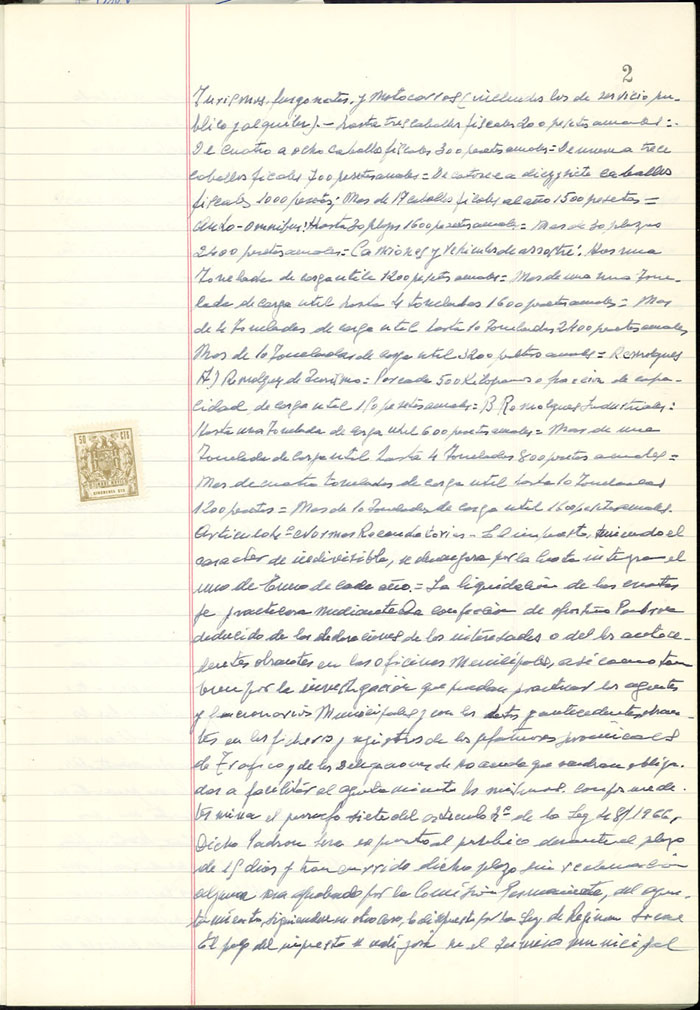 2
Turismos, furgonetas y Motocarros (incluidos los de servicio pu-
blico y alquiler).- hasta tres caballos fiscales 200 pesetas anuales=.
De cuatro a ocho caballos fiscales 300 pesetas anuales= De nueve a trece
caballos fiscales 700 pesetas anuales= De catorce a diez y siete caballos
fiscales 1000 pesetas; Mas de 17 caballos fiscales al año 1500 pesetas=
Auto-omnibus: Hasta 30 plazas 1600 pesetas anuales= Mas de 30 plazas
2400 pesetas anuales= Camiones y Vehiculos de arrastre: una
Tonelada de carga util 1200 pesetas anuales= Mas de una Tone-
lada de carga util hasta 4 toneladas 1600 pesetas anuales= Mas
de 4 Toneladas de carga util hasta 10 Toneladas 2400 pesetas anuales
Mas de 10 Toneladas de carga util 3200 pesetas anuales= Remolques
A) Remolques de Turismo= Por cada 500 Kilogramos o fraccion de capa-
cidad de carga util pesetas anuales= B. Remolques Industriales:
Hasta una Tonelada de carga util 600 pesetas anuales= Mas de una
Tonelada de carga util hasta 4 Toneladas 800 pesetas anuales=
Mas de cuatro toneladas de carga util hasta 10 Toneladas
1200 pesetas= Mas de 10 Toneladas de carga util 1600 pesetas anuales.
Articulo Normas Recaudatorias- El impuesto, teniendo el
caracter de indivisible, se devengara por la Cuota integra el
uno de Enero de cada año.= La liquidación de las cuotas
se practicara mediante la confección de oportuno Padron
deducido de las declaraciones de los interesados o del los antece-
dentes obrantes en las oficinas Municipales, así como tam
bien por la investigación que puedan practicar los agentes
y funcionarios Municipales y con los datos y antecedentes obran-
tes en los ficheros y registros de las jefaturas provinciales
de Trafico y de las Delegaciones de Hacienda que vendran obliga-
das a facilitar al ayuntamiento los mismos. conforme de-
termina el parrafo siete del articulo 2º de la Ley de 8/1966,
Dicho Padron sera expuesto al publico durante el plazo
de 15 dias y transcurrido dicho plazo sin reclamación
alguna sera aprobado por la Comisión Permanente, del ayun-
tamiento, siguiendose en otro caso, lo dispuesto por la Ley de Regimen Local
El pago del impuesto se en el Termino municipal
50 CTS